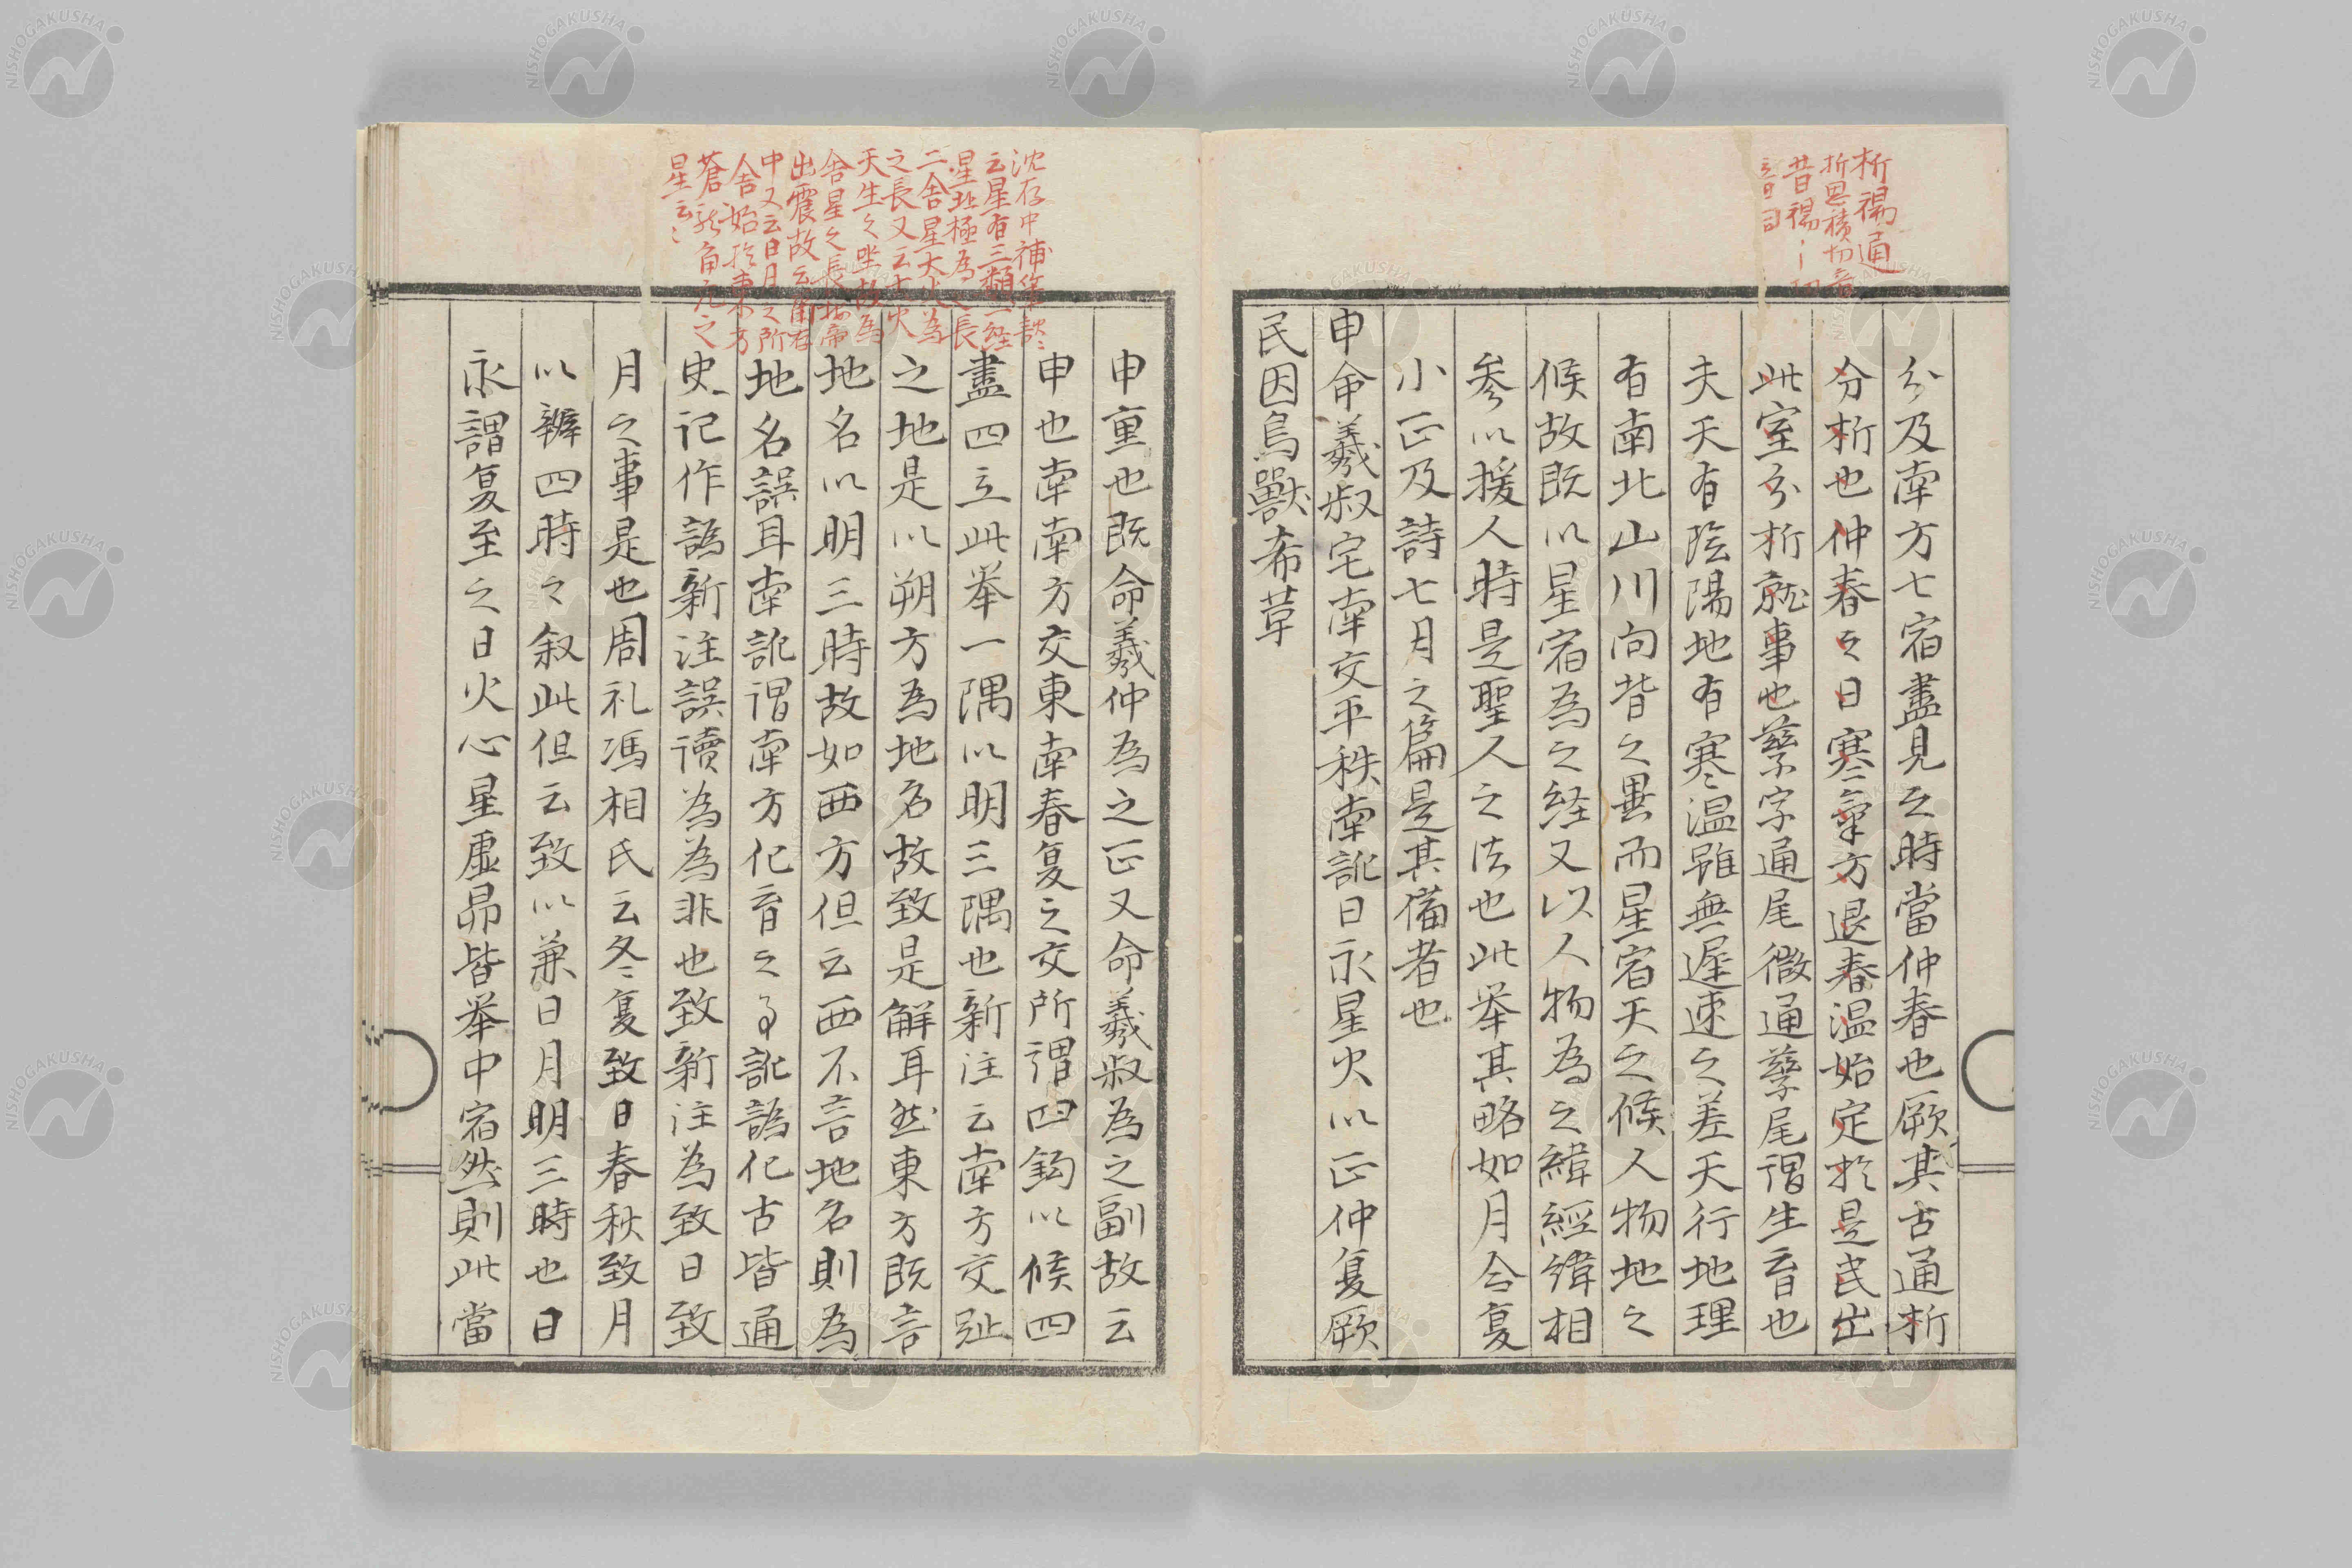 析裼通
析思積切音
昔裼
分及南方七宿盡見之時當仲春也厥其古通析
分析也仲春之日寒氣方退春温始定於是民出
此室分析就事也孳字通尾微通孳尾謂生育也
夫天有陰陽地有寒温雖無遲速之差天行地理
有南北山川向背之異而星宿天之候人物地之
候故既以星宿為之経又以人物為之緯經緯相
参以援人時是聖人之法也此举其略如月令夏
小正及詩七月之篇是其備者也
申命羲叔宅南交平秩南訛日永星火以正仲夏厥
民因鳥獸希革
沈存中補筆談
云星有三類一経
星北極為之長
二舎星大火為
之長又云大火
天生之坐故為
舎星之長
出震故云
中又云日月之所
舎始於東方
蒼龍角亢之
星云〻
申重也既命羲仲為之正又命羲叔為之副故云
申也南南方交東南春夏之交所謂四鈎以候四
盡四立此举一隅以明三隅也新注云南方交趾
之地是以朔方為地名故致是解耳然東方既言
地名以明三時故如西方但云西不言地名則為
地名誤耳南訛謂南方化育之事訛譌化古皆通
史記作譌新注誤読為為非也致新注為致日致
月之事是也周礼馮相氏云冬夏致日春秋致月
以辨四時之叙此但云致以兼日月明三時也日
永謂夏至之日火心星虚昴皆举中宿然則此當